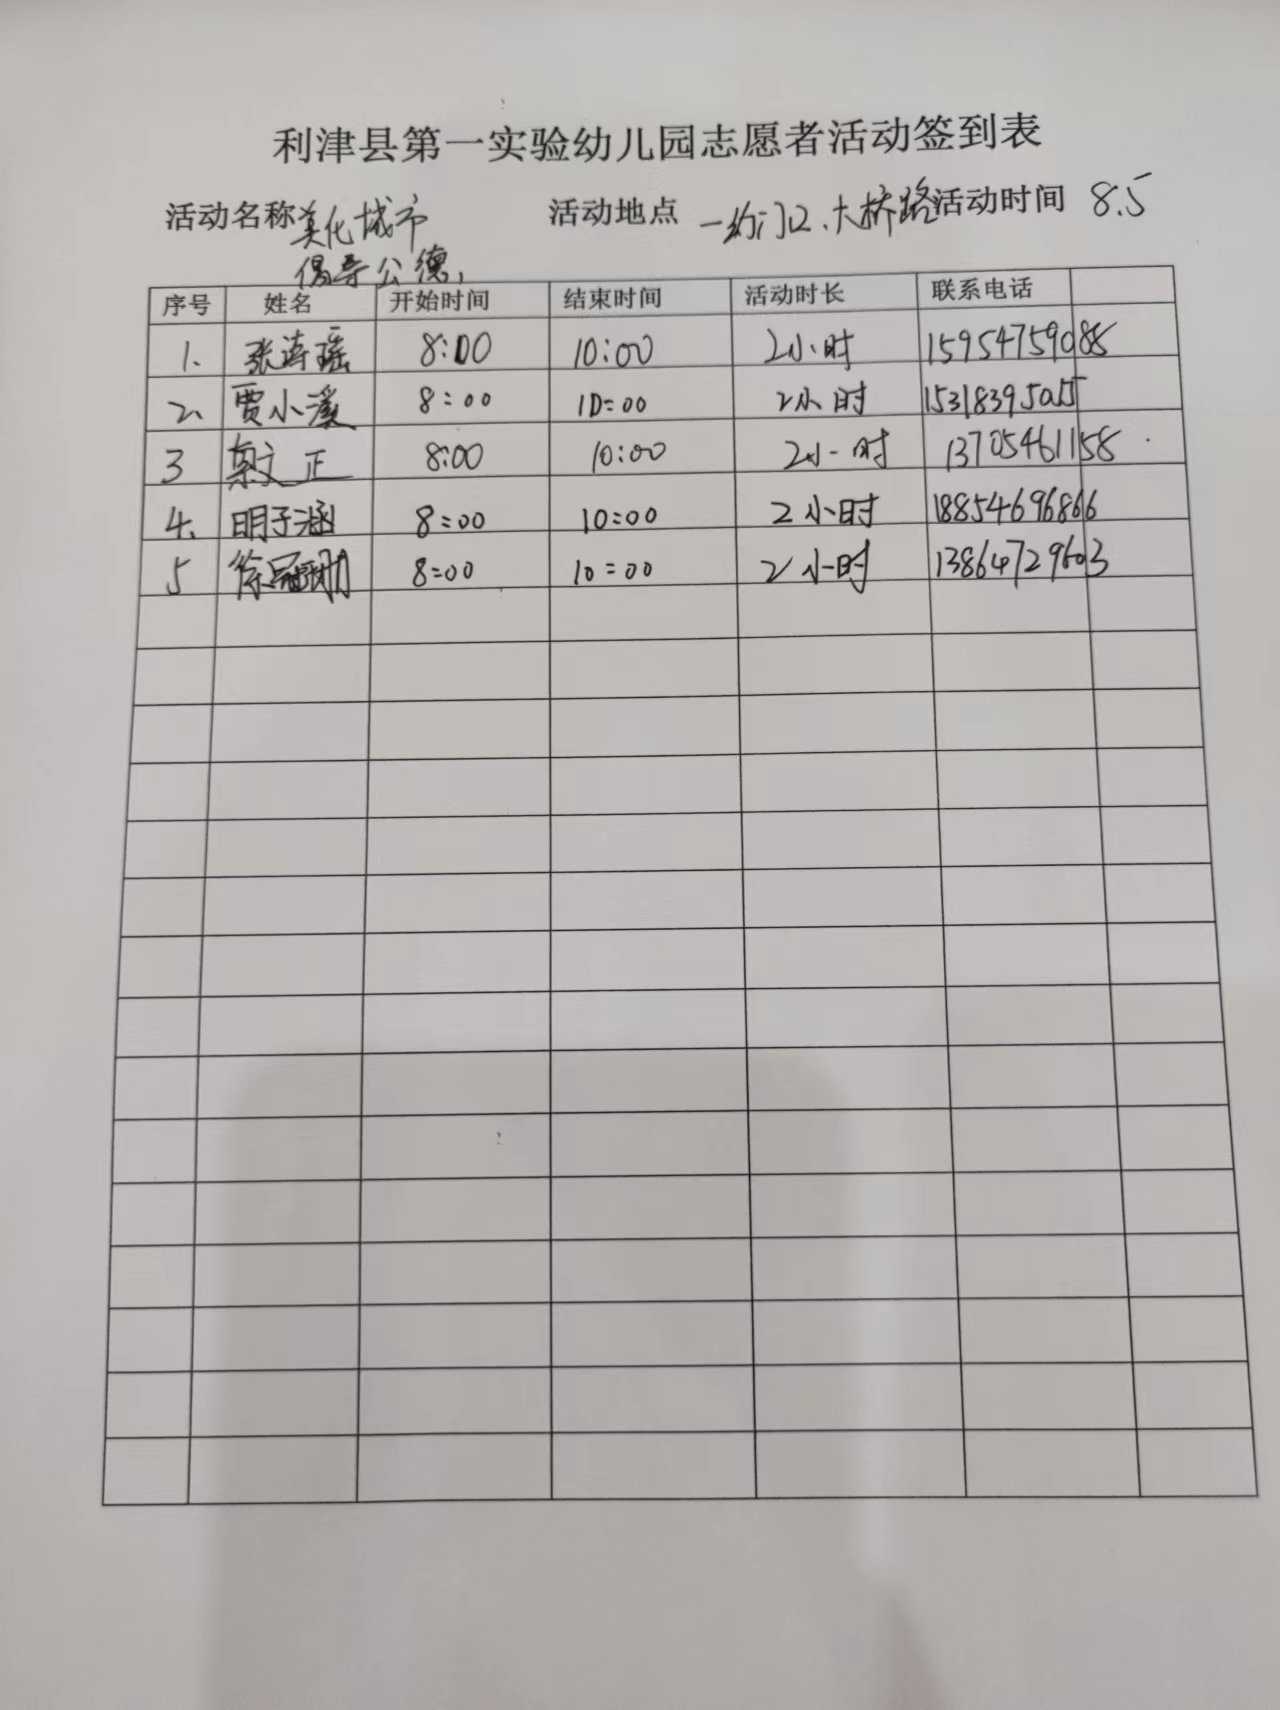 利津县第一实验幼儿园志愿者活动签到表
活动名称 美化城市 活动地点 一幼门口、大桥路 活动时间 8.5
倡导公德
序号 姓名 开始时间 结束时间 活动时长 联系电话
1. 张涛瑶 8:00 10:00 2小时 15954759088
2. 贾小溪 8:00 10:00 2小时 15318395055
3 文正 8:00 10:00 2小时 13705461158
4. 明子涵 8:00 10:00 2小时 18854696866
5 徐 8:00 10:00 2小时 13864729603